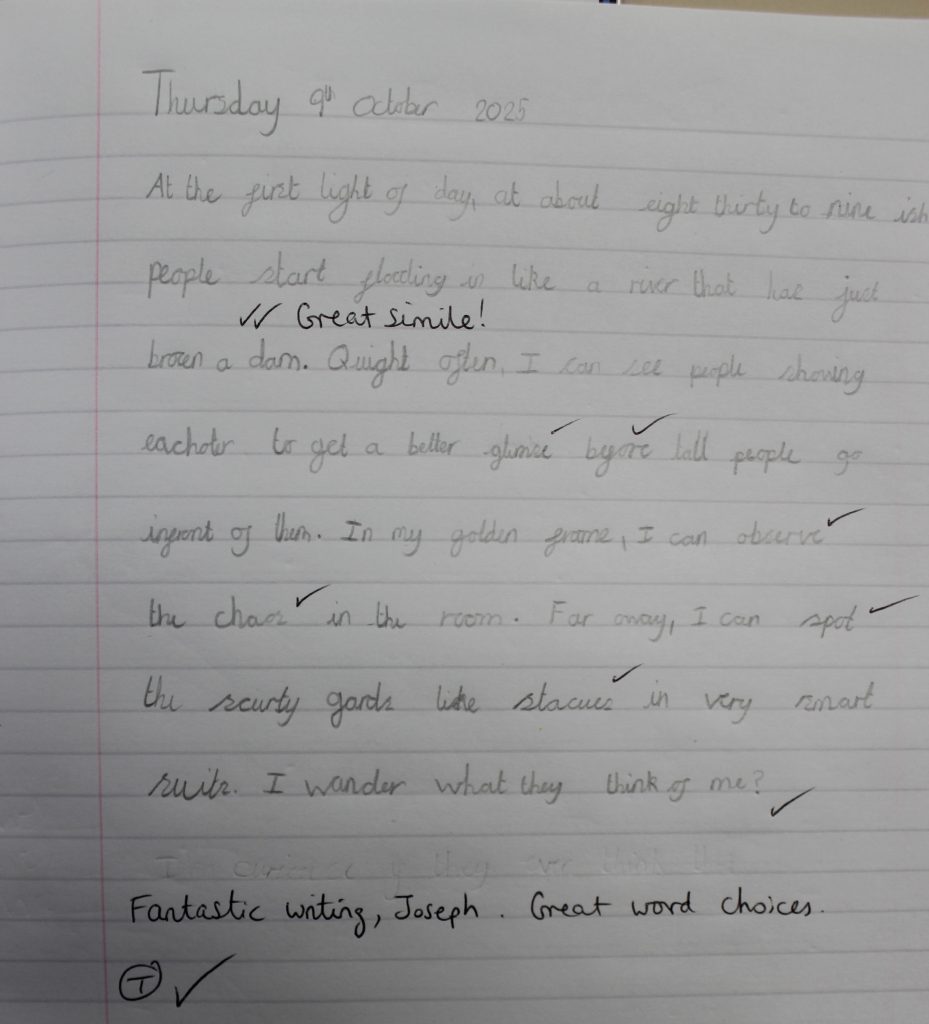 Thursday 9th October 2025
At the first light of day, at about eight thirty to nine ish
people start flooding in like a river that has just
✓✓ Great simile!
broen a dam. Quight often, I can see people shoving
eachotr to get a better glimce before tall people go
infront of them. In my golden frame, I can observe
the chaos in the room. Far away, I can spot
the scurty gards like stacues in very smart
suits. I wander what they think of me?
they ever think
Fantastic writing, Joseph. Great word choices.
T ✓